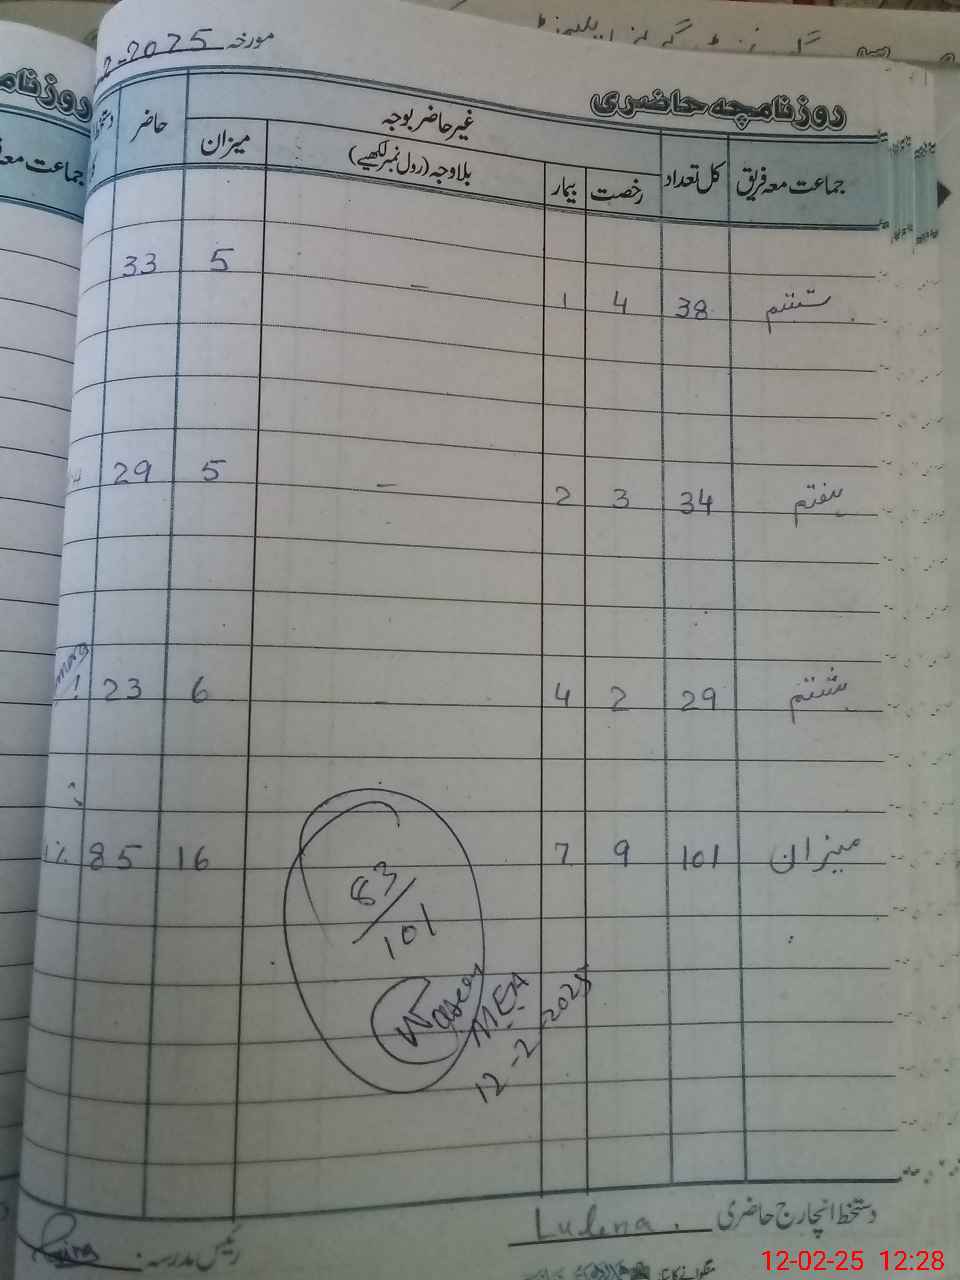 مورخہ 2-2025
روزنامچہ حاضری
جماعت معہ فریق کل تعداد غیر حاضر بوجہ حاضر
رخصت بیمار بلاوجہ (رول نمبر لکھیے) میزان
ششم 38 4 1 - 5 33
ہفتم 34 3 2 - 5 29
ہشتم 29 2 4 - 6 23
میزان 101 9 7 16 85
83/101
Waseem
MEA
12-2-2025
دستخط انچارج حاضری Lubna.
رئیس مدرسہ
روزنام
جماعت معہ
12-02-25 12:28